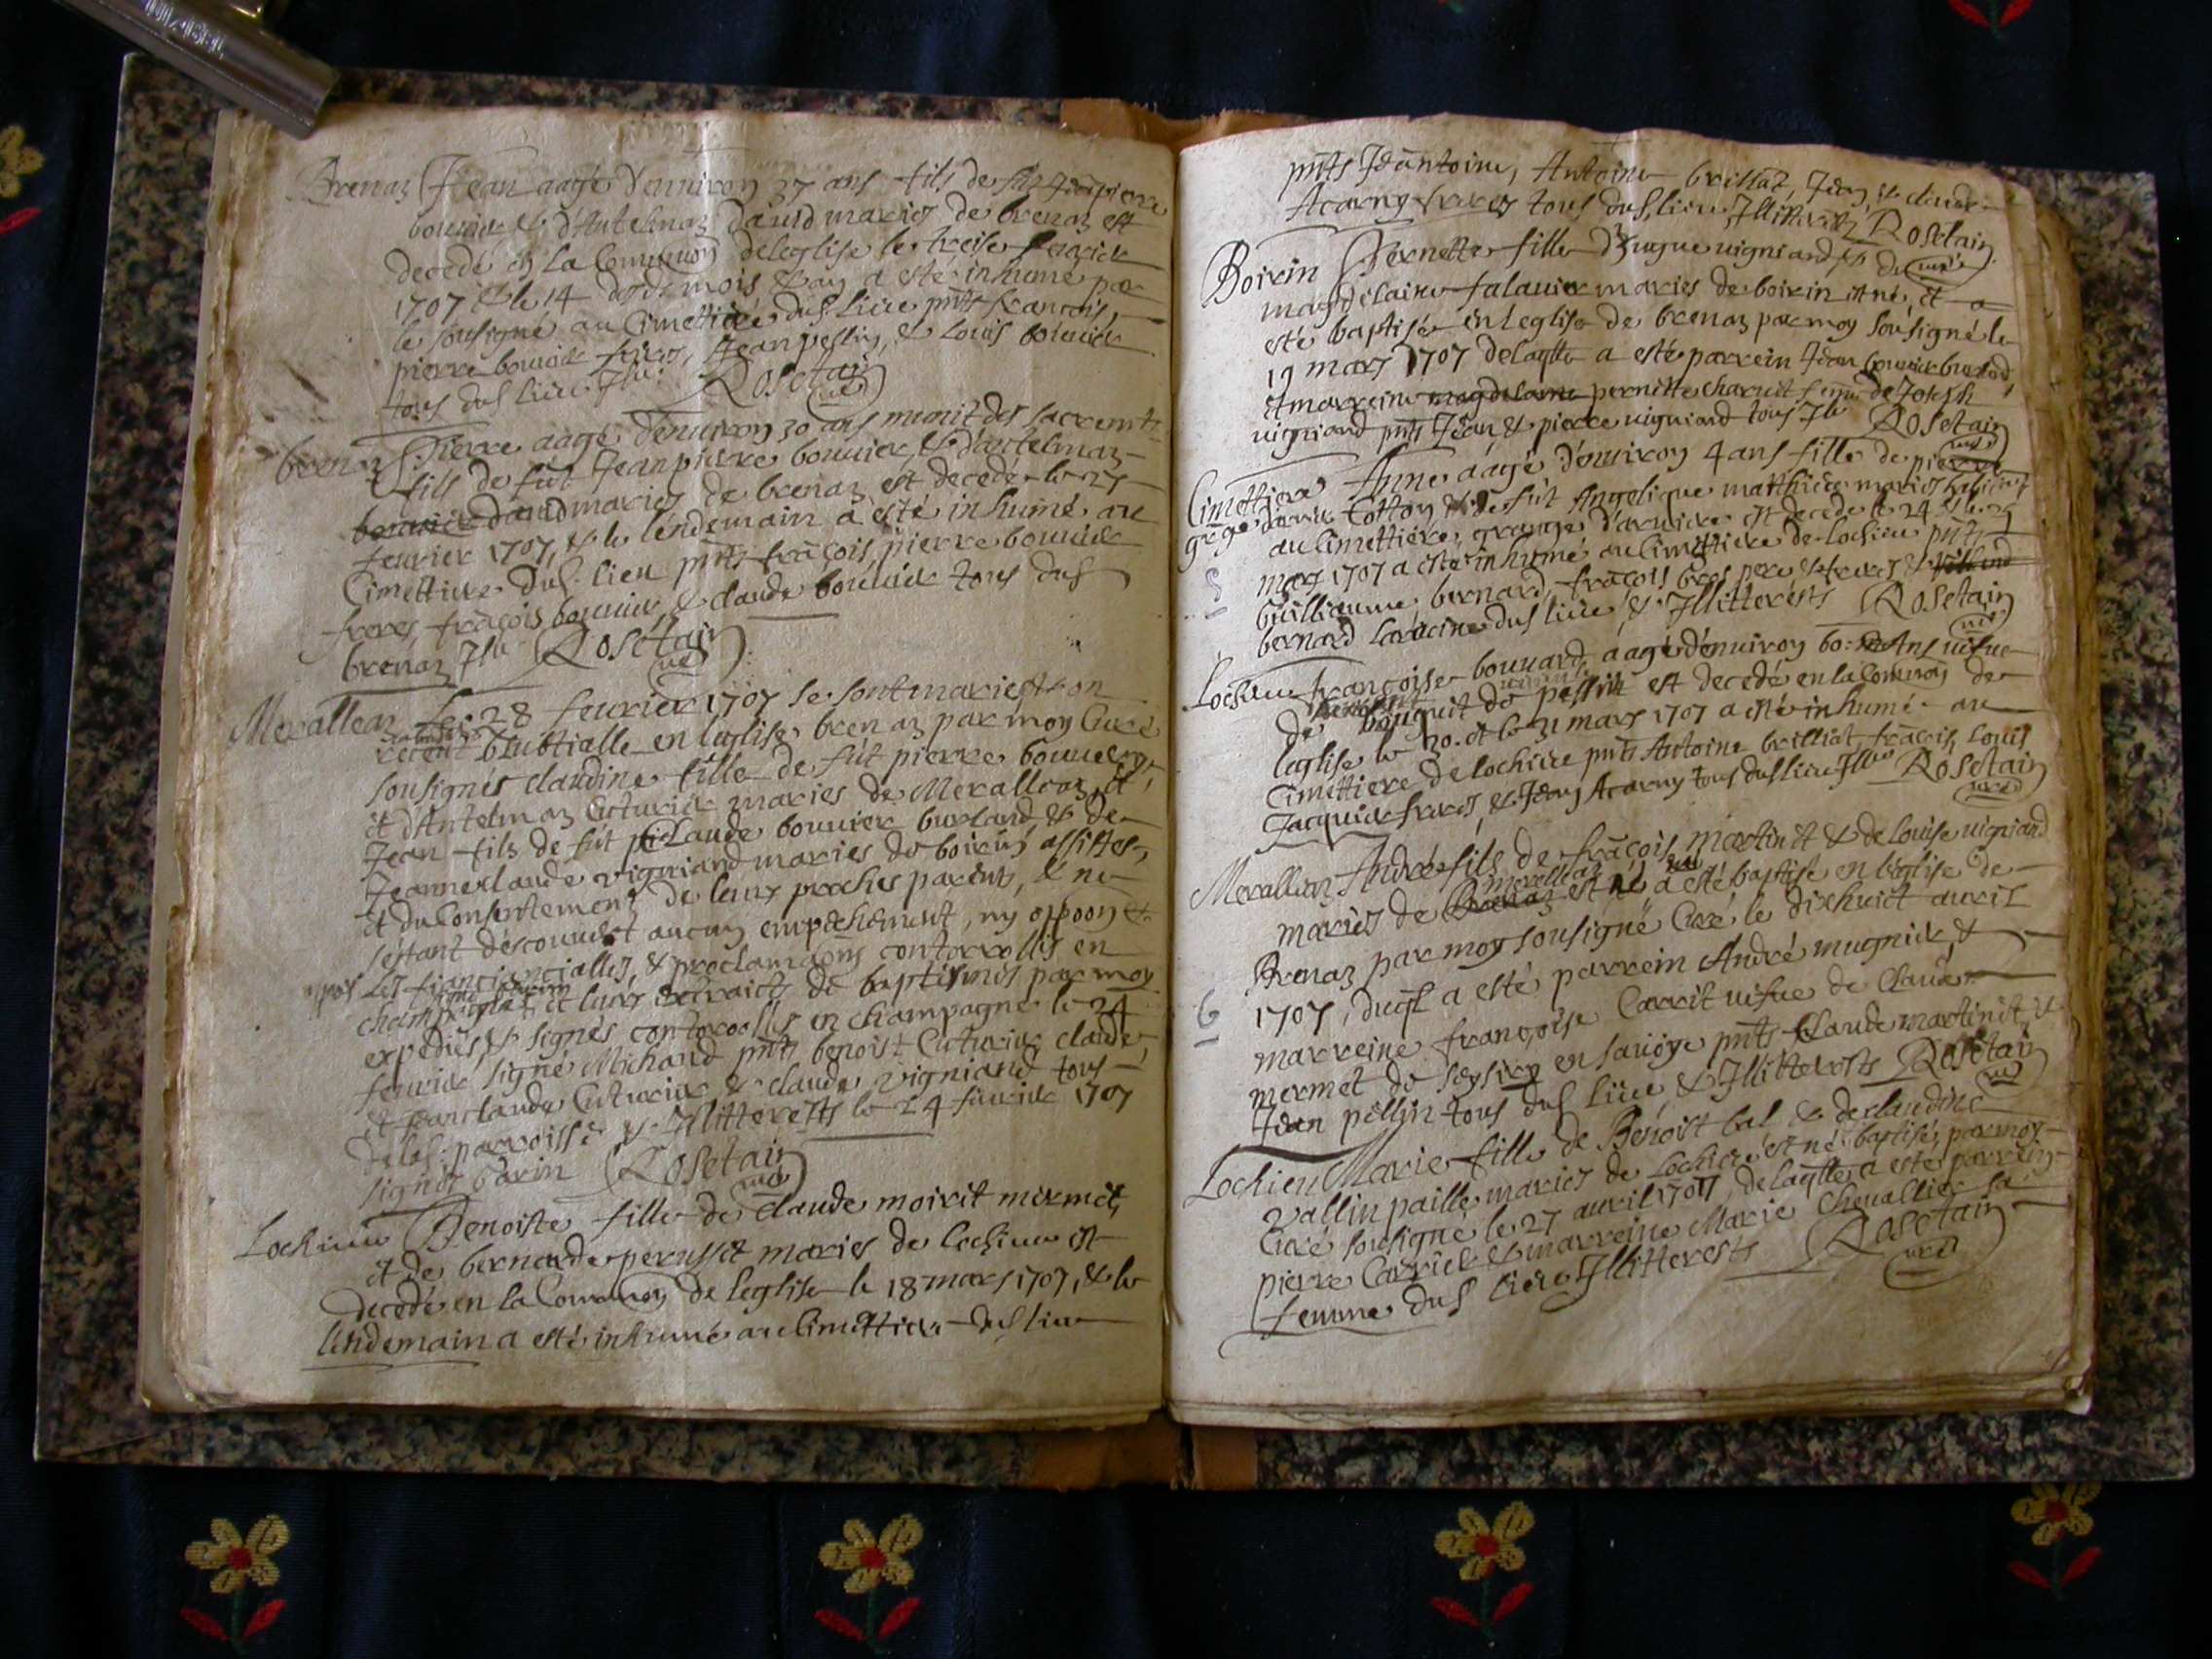 Brenaz Jean aagé d'enuiron 37 ans fils de fût Jeanpierre
bouuier & d'Antelmaz Dauid mariés de brenaz est
decedé en la Communion de leglise le treise feurier
1707 & le 14 dud mois & an a esté inhumé par
le sousigné au Cimettiere duf lieu pnts francois,
pierre bouuier freres, Jean pessin, & louis bouuier
tous duf lieu Illi. Rosetain
curé
brenaz Pierre aagé d'enuiron 30 ans munit des sacremts
fils de fût Jeanpierre bouuier, & d'Antelmaz
bouuier dauid mariés de brenaz est decedé le 25
feurier 1707, & le lendemain a esté inhumé au
Cimettiere Duf. lieu pnts frãçois, pierre bouuier
freres frãçois bouuier, & claude bouuier tous duf
brenaz Illi Rosetain
curé
Meralleaz Le 28 feurier 1707 se sont mariés & on
receu nubtialle en leglise brenaz par moy Curé
sousignés claudine fille de fût pierre bouuery
et d'Antelmaz Cuturier maries de Meralleaz, et
Jean fils de fût Claude bouuier burland & de
Jeanneclaude vigniand maries de boirin assistes,
et du Consentement de leurs proches parents, & ne
s'estant descouuert aucun empeschement, ny oppoon &
les fiancialles, & proclamãons contorrollés en
champagne et leurs extraicts de baptismes par moy
expediés, & signés contoroollés en champagne le 24
feurier signé Michaud pnts benoist Cuturier, claude,
et Jeanclaude Cuturier & claude vigniand tous
delaf: parroisse & Illitterests le 24 feurier 1707
signés barin Rosetain
curé
Lochieu Benoiste fille de Claude moirit mermet,
et de bernarde perusset maries de lochieu est
decedé en la Comunion de leglise le 18 mars 1707, & le
lendemain a esté inhumé au Cimettiere duf lieu
pnts Jeãntoine, Antoine brillat, Jean, & claude
Acarny freres tous duf, lieu, Illitterests Rosetain
curé
Boirin Pernette fille d'hugue uigniand, & de
magdelaine falauier maries de boirin est né, et a
esté baptisé en leglise de brenaz par moy sousigné le
19 mars 1707 delaqlle a esté parrein Jean bouuier burland
et marreine magdelaine pernette charuet femme de Joseph
uigniand pnts Jean & pierre uigniand tous Ills Rosetain
curé
Cimettiere Anne aagé d'enuiron 4 ans fille de pierre
grãge cotton & de fût Angelique matthieu maries
au Cimettiere, grange d'aruiere est decedé le 24 & le 25
mars 1707 a esté inhumé au Cimettiere de lochieu pnts
Guilliaume bernard, frãçois gros pere & freres &
bernard laracine duf lieu & Illitterests Rosetain
curé
5
Lochieu françoise bouuard, aagé d'enuiron 60 Ans uefue
de de est decedé en la Comunion de
leglise le 30. et le 31 mars 1707 a esté inhumé au
Cimettiere de lochieu pnts Antoine brilliat, frãçois, Louis
Jacquier freres, & Jean Acarny tous duf lieu Illi Rosetain
curé
Meralleaz André fils de frãçois martinet & de louise uigniand
maries de Brenaz meralleaz est né a esté baptisé en leglise de
Brenaz par moy sousigné Curé le dixhuict auril
1707, duql a esté parrein André mugnier, &
marreine françoise Carrit uefue de Claude
mermet de seysin en sauoye pnts Claude martinet, &
Jean pellin tous duf lieu & Illitterests Rosetain
curé
6
Lochieu Marie fille de Benoist bal & de claudine
vallin paille maries de Lochieu est né & baptisé, par moy
Curé sousigné le 27 auril 1707, delaqlle a esté parrein
pierre Carrier & marreine Marie Cheuallier sa
femme duf lieu Illitterests Rosetain
curé